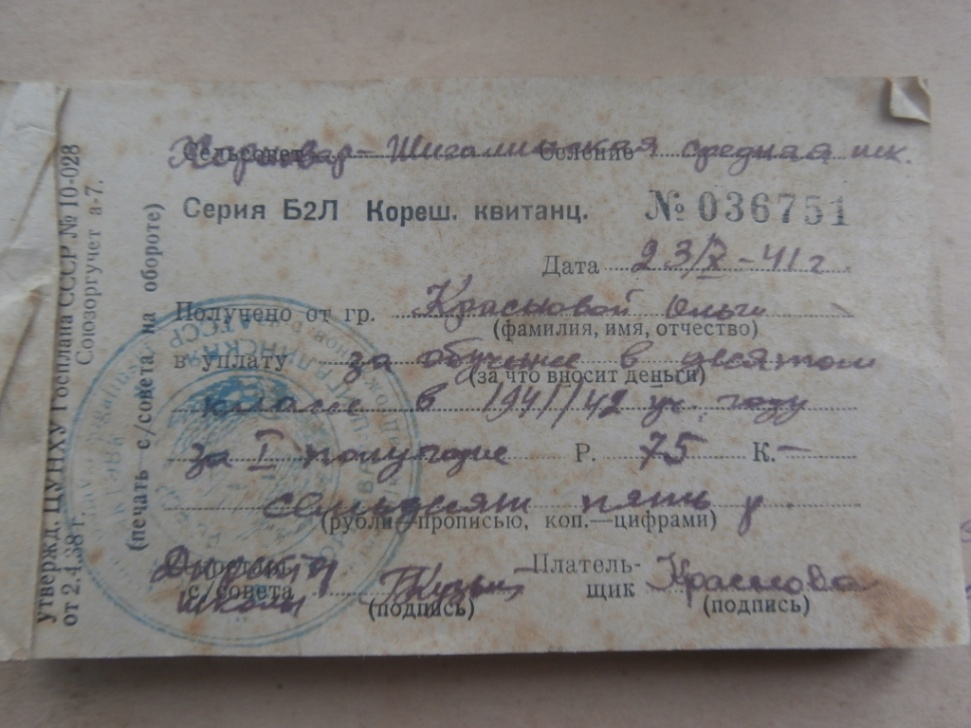 Утвержд. ЦУНХУ Госплана СССР № 10-028
от 2.4.38 г. Союзоргучет а-7.
(печать с/совета на обороте)
Сельсовет Селение
Хормвар-Шигалинская средняя шк.
Серия Б2Л Кореш. квитанц. № 036751
Дата 23/X-41 г.
Получено от гр. Красновой Ольги
(фамилия, имя, отчество)
в уплату за обучение в десятом
(за что вносит деньги)
классе в 1941/42 уч. году
за I полугодие Р. 75 К. —
семьдесят пять р.
(рубли—прописью, коп.—цифрами)
Директор Платель-
школы с/совета щик Краснова
(подпись) (подпись)